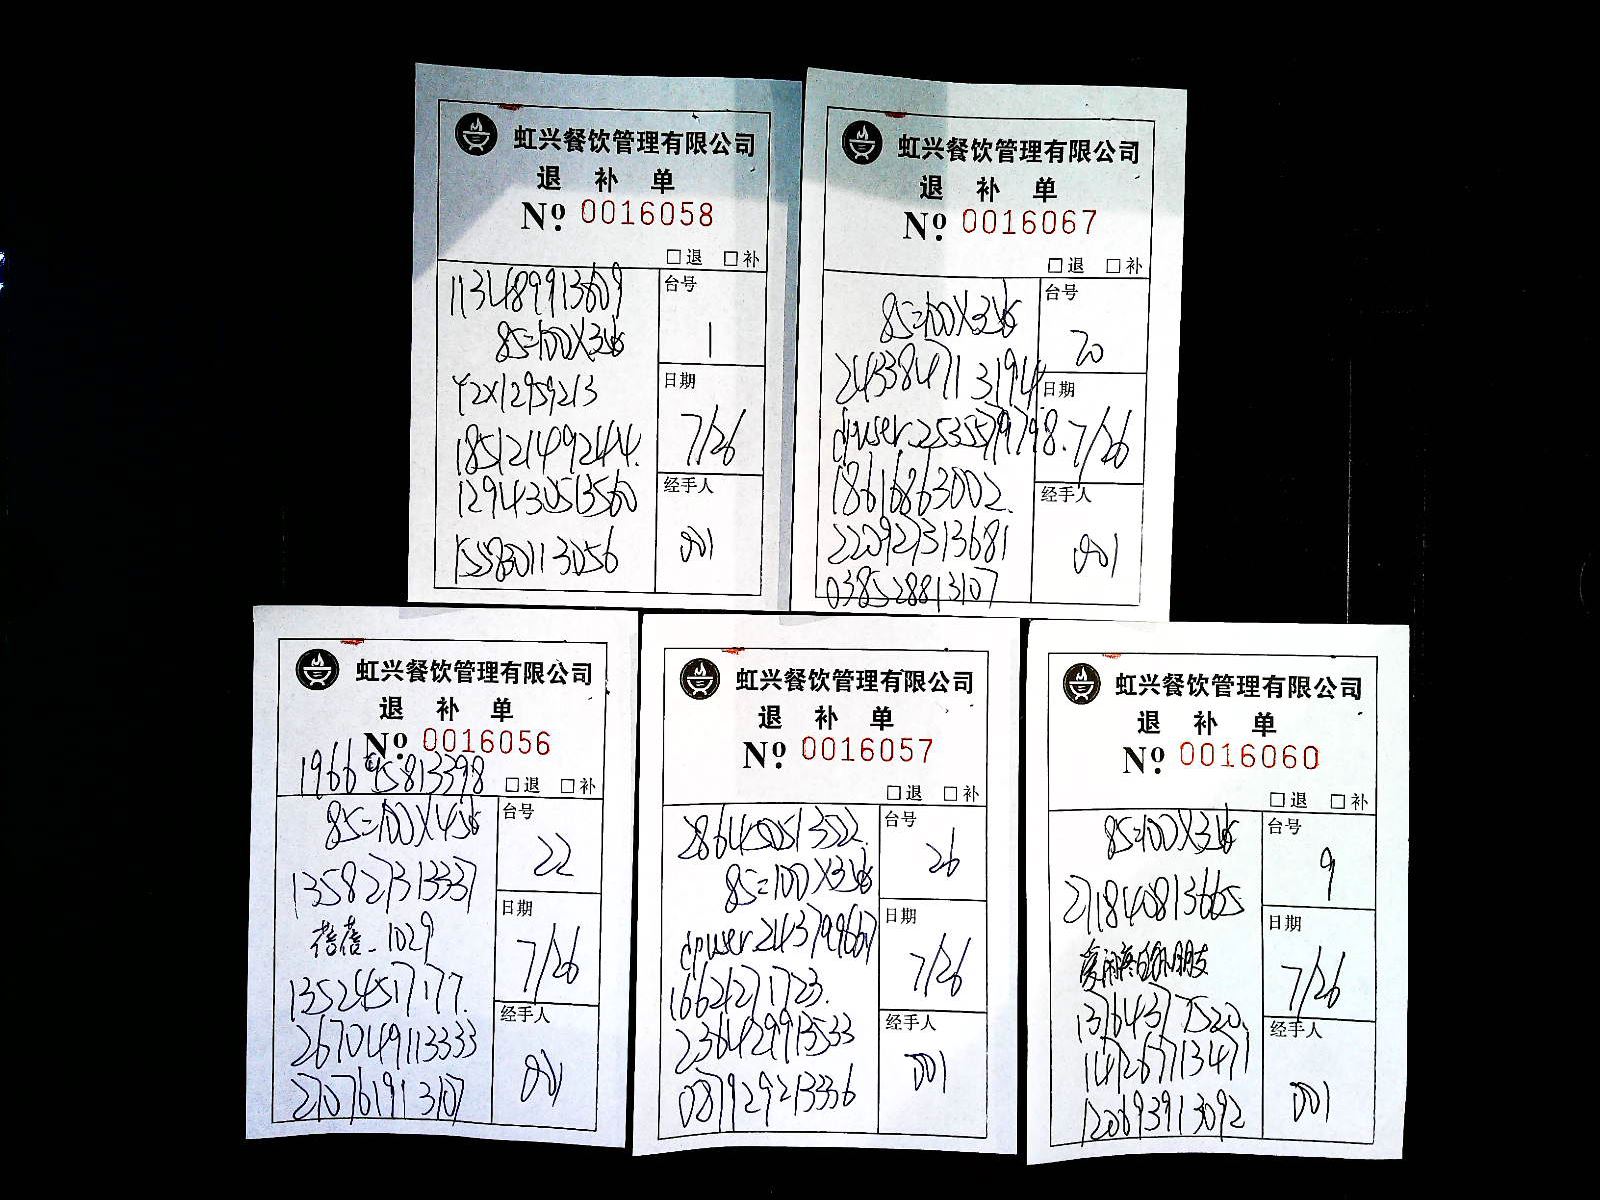 虹兴餐饮管理有限公司
退 补 单
Nº 0016058
□退 □补
113489913609
85=100X3张
YZX12959213
18512149244.
129430513560
155830113056
台号
1
日期
7/26
经手人
001
虹兴餐饮管理有限公司
退 补 单
Nº 0016067
□退 □补
85=100X3张
243384713194
dpuser.2535579798.
18616863002.
220927313681
038528813107
台号
20
日期
7/26
经手人
001
虹兴餐饮管理有限公司
退 补 单
Nº 0016056
196695813398
□退 □补
85=100X4张
135827313337
蓓蓓_1029
13524517177.
267049113333
270761913107
台号
22
日期
7/26
经手人
001
虹兴餐饮管理有限公司
退 补 单
Nº 0016057
□退 □补
286450513522.
85=100X3张
dpuser2143799667
16621271723.
236429913533
087929213336
台号
26
日期
7/26
经手人
001
虹兴餐饮管理有限公司
退 补 单
Nº 0016060
□退 □补
85=100X3张
271840813665
13764377520.
114726713471
120693913092
台号
9
日期
7/26
经手人
001